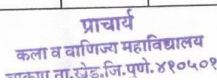 प्राचार्य
कला व वाणिज्य महाविद्यालय
चाकण ता.खेड.जि.पुणे.४१०५०१